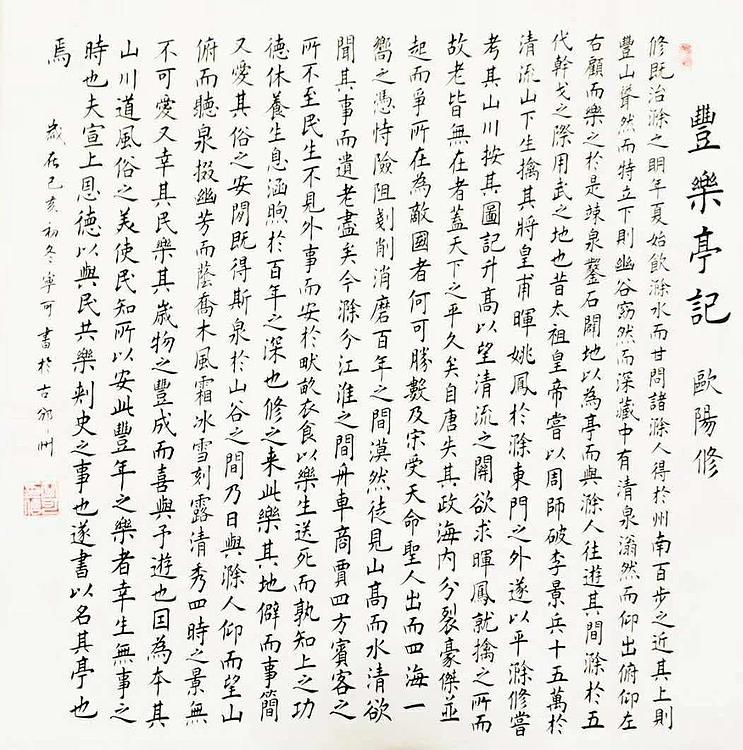 豐樂亭記 歐陽修
修既治滁之明年夏始飲滁水而甘問諸滁人得於州南百步之近其上則
豐山聳然而特立下則幽谷窈然而深藏中有清泉滃然而仰出俯仰左
右顧而樂之於是疎泉鑿石闢地以為亭而與滁人往遊其間滁於五
代幹戈之際用武之地也昔太祖皇帝嘗以周師破李景兵十五萬於
清流山下生擒其將皇甫暉姚鳳於滁東門之外遂以平滁修嘗
考其山川按其圖記升高以望清流之關欲求暉鳳就擒之所而
故老皆無在者蓋天下之平久矣自唐失其政海內分裂豪傑並
起而爭所在為敵國者何可勝數及宋受天命聖人出而四海一
嚮之憑恃險阻剗削消磨百年之間漠然徒見山高而水清欲
聞其事而遺老盡矣今滁分江淮之間舟車商賈四方賓客之
所不至民生不見外事而安於畎畝衣食以樂生送死而孰知上之功
德休養生息涵煦於百年之深也修之來此樂其地僻而事簡
又愛其俗之安閒既得斯泉於山谷之間乃日與滁人仰而望山
俯而聽泉掇幽芳而蔭喬木風霜冰雪刻露清秀四時之景無
不可愛又幸其民樂其歲物之豐成而喜與予遊也因為本其
山川道風俗之美使民知所以安此豐年之樂者幸生無事之
時也夫宣上恩德以與民共樂刺史之事也遂書以名其亭也
焉
歲在己亥初冬寧可書於古邠州